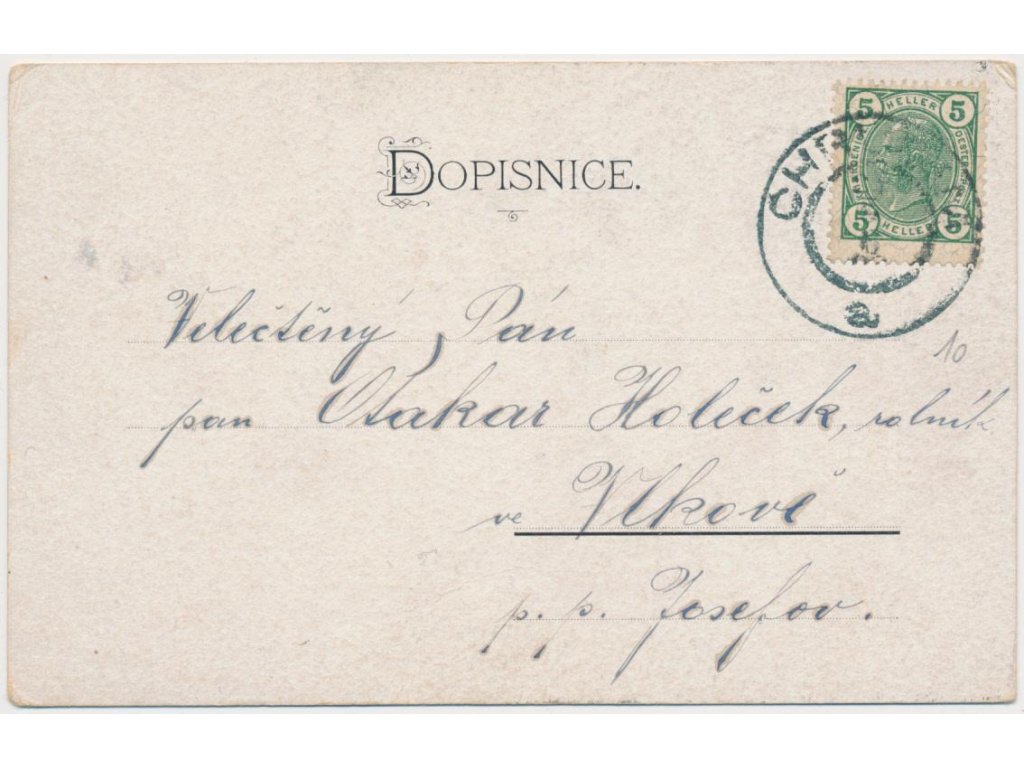 DOPISNICE.
5 HELLER 5
5 HELLER 5
a
10
Velectěný Pán
pan Otakar Holeček, rolník
ve Vlkově
p. p. Josefov.